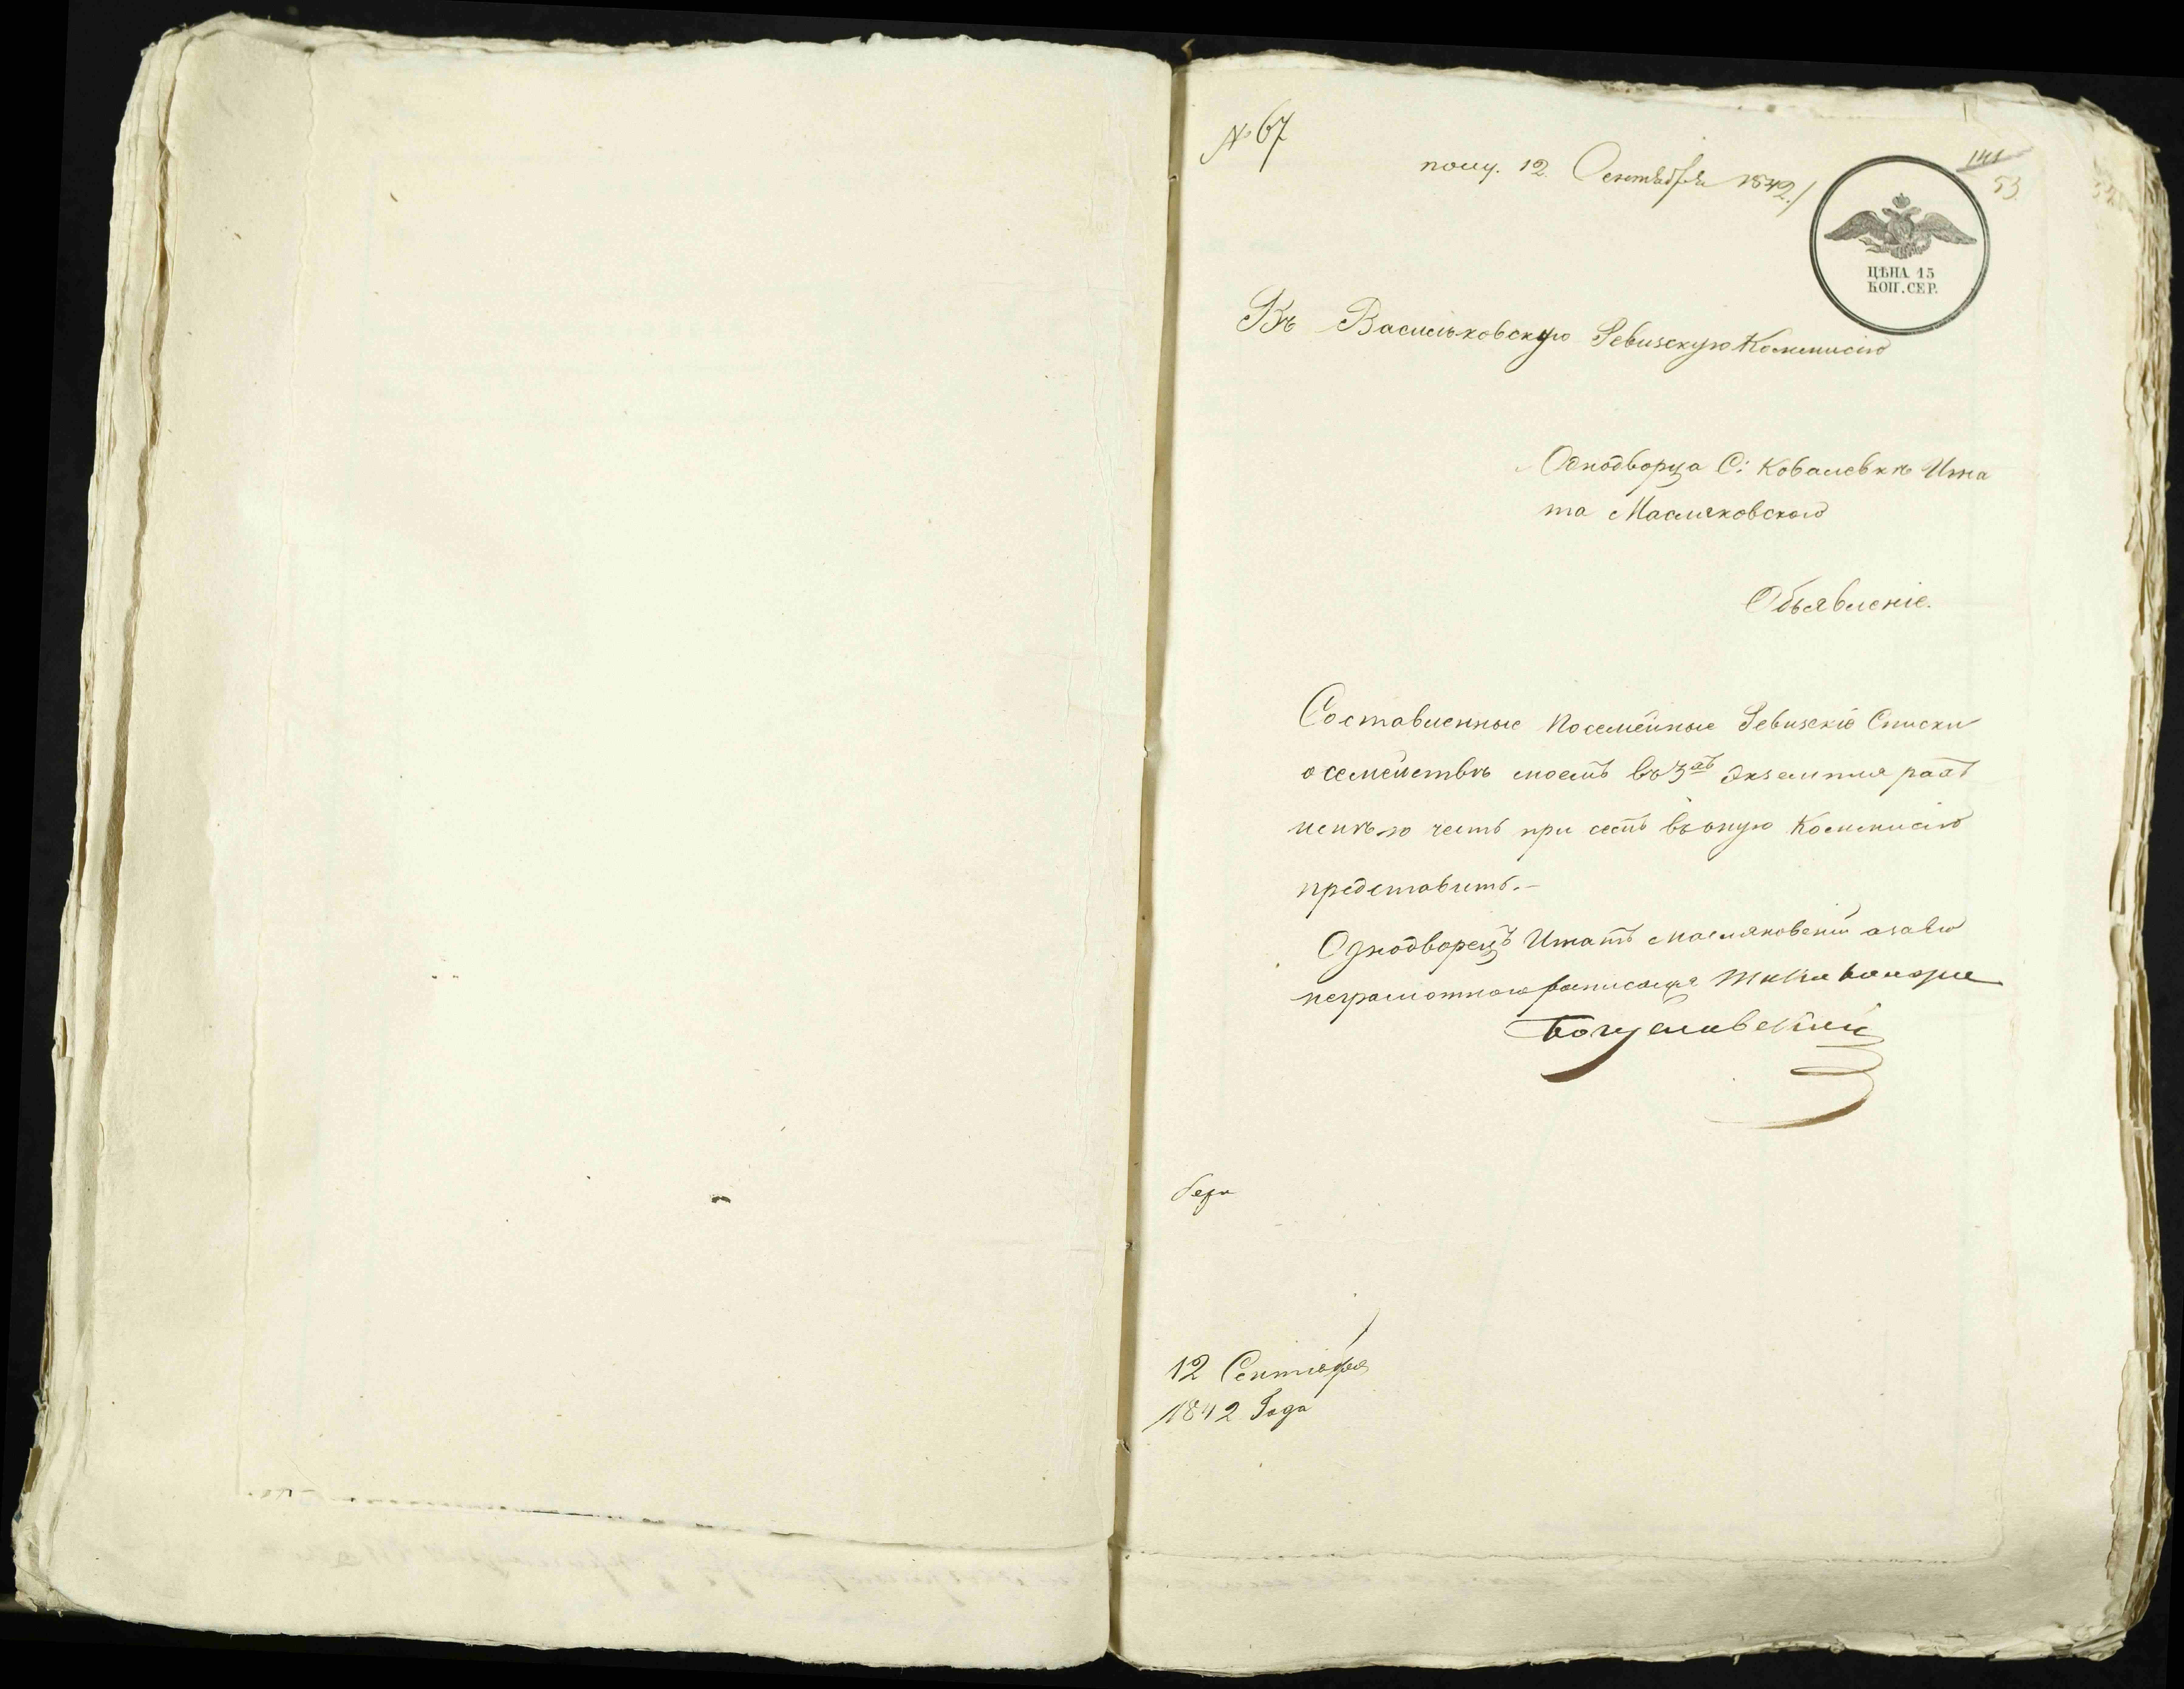 № 67
полу. 12 Сентября 1842.
141
53
ЦѢНА 15
КОП. СЕР.
Въ Васильковскую Ревизскую Коммисію
Однодворца С: Ковалевки Игна
та Масляковского
Объявленіе.
Составленные Посемейные Ревизскіе Списки
о семействѣ моемъ въ 3хъ Экземпля рахъ
имѣю честь при семъ въ оную Коммисію
представить.—
Однодворецъ Игнатъ Масляковскій а за его
неграмотного росписался
Богуславскій
12 Сентября
1842 Года